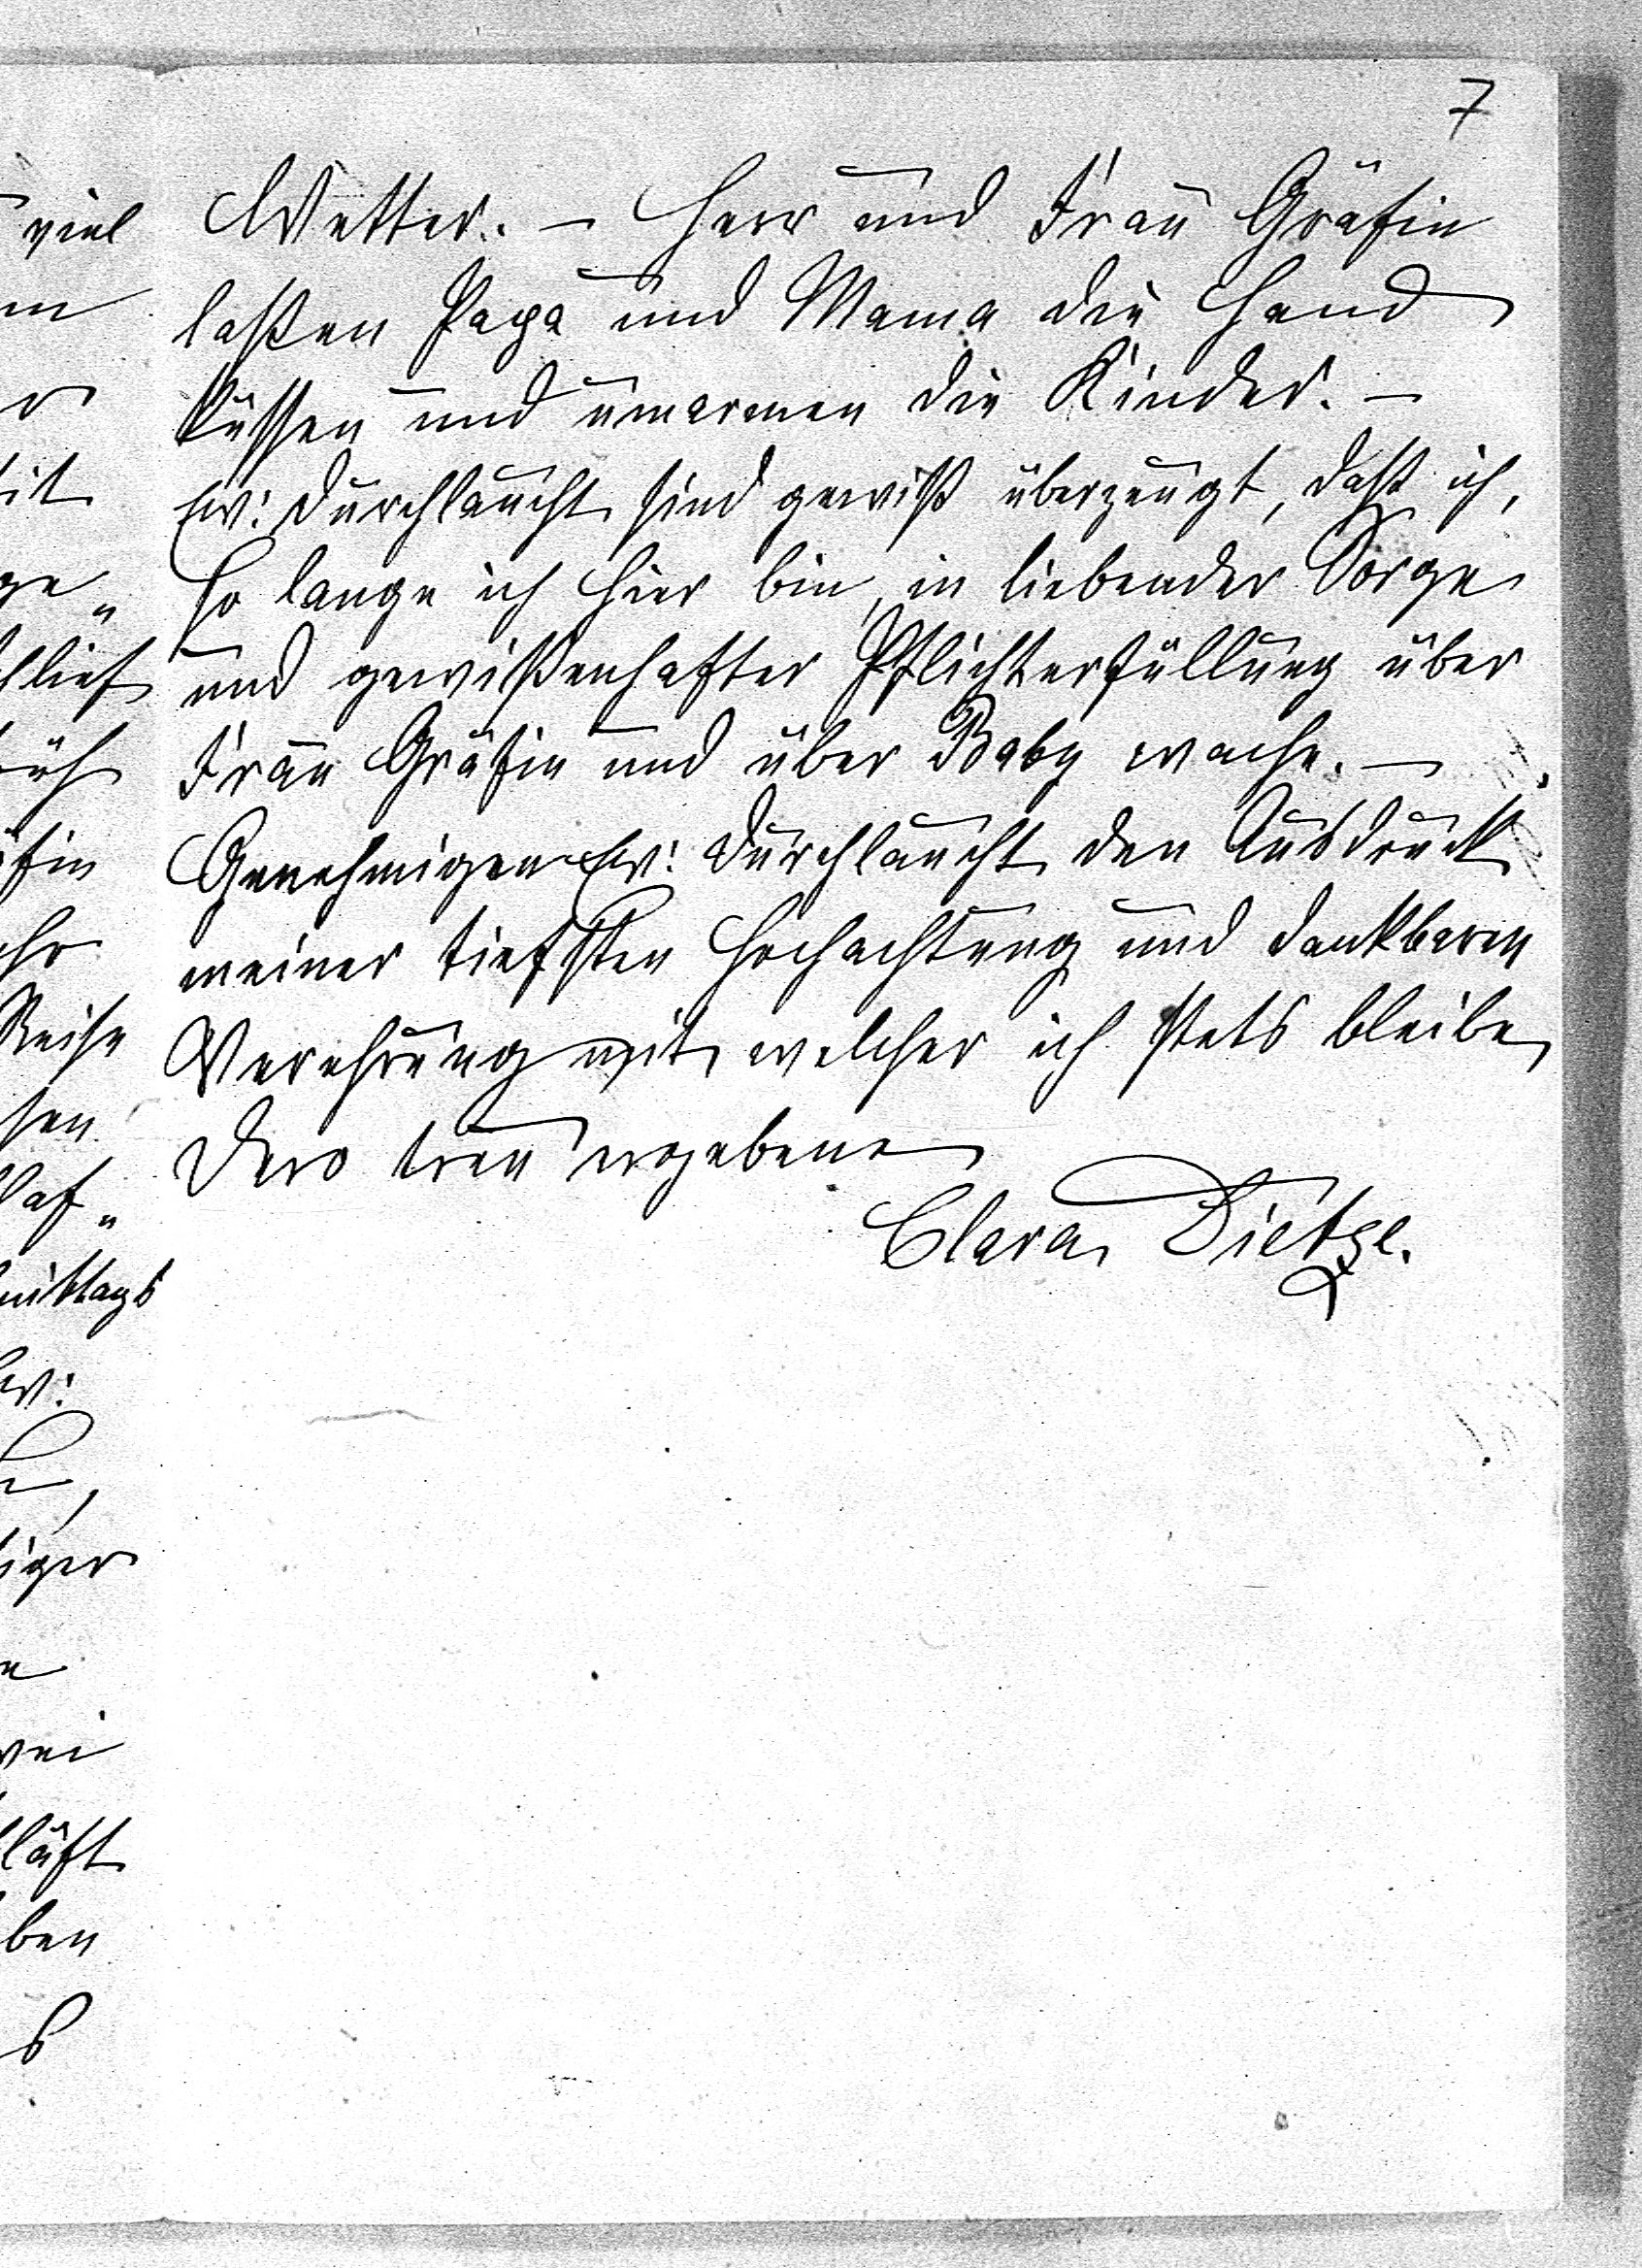 7
Wetter. – Herr und Frau Gräfin
laßen Papa und Mama die Hand
küssen und umarmen die Kinder. –
Ew: Durchlaucht sind gewiß überzeugt, daß ich,
so lange ich hier bin, in liebender Sorge
und gewißenhafter Pflichterfüllung über
Frau Gräfin und über Baby wache. –
Genehmigen Ew: Durchlaucht den Ausdruck
meiner tiefsten Hochachtung und dankbaren
Verehrung mit welcher ich stets bleibe
Dero treu ergebene
Clara Dietze.
viel
Reise
mittags
Ew: